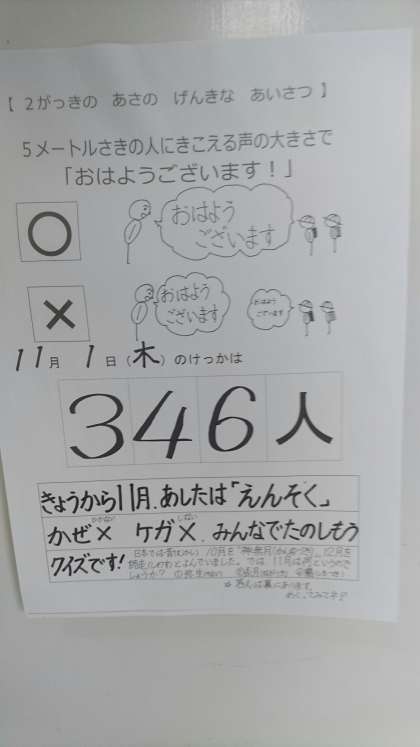 【 2がっきの あさの げんきな あいさつ 】
5メートルさきの人にきこえる声の大きさで
「おはようございます！」
○
おはよう
ございます
×
おはよう
ございます
おはよう
ございます
11月 1日（木）のけっかは
346人
きょうから11月。あしたは「えんそく」
かぜ× ケガ×。みんなでたのしもう
クイズです！
日本では昔(むかし)、10月を「神無月(かんなづき)」、12月を
師走(しわす)とよんでいました。では、11月は何というので
しょうか？
答えは裏にあります。
めくってみてネ